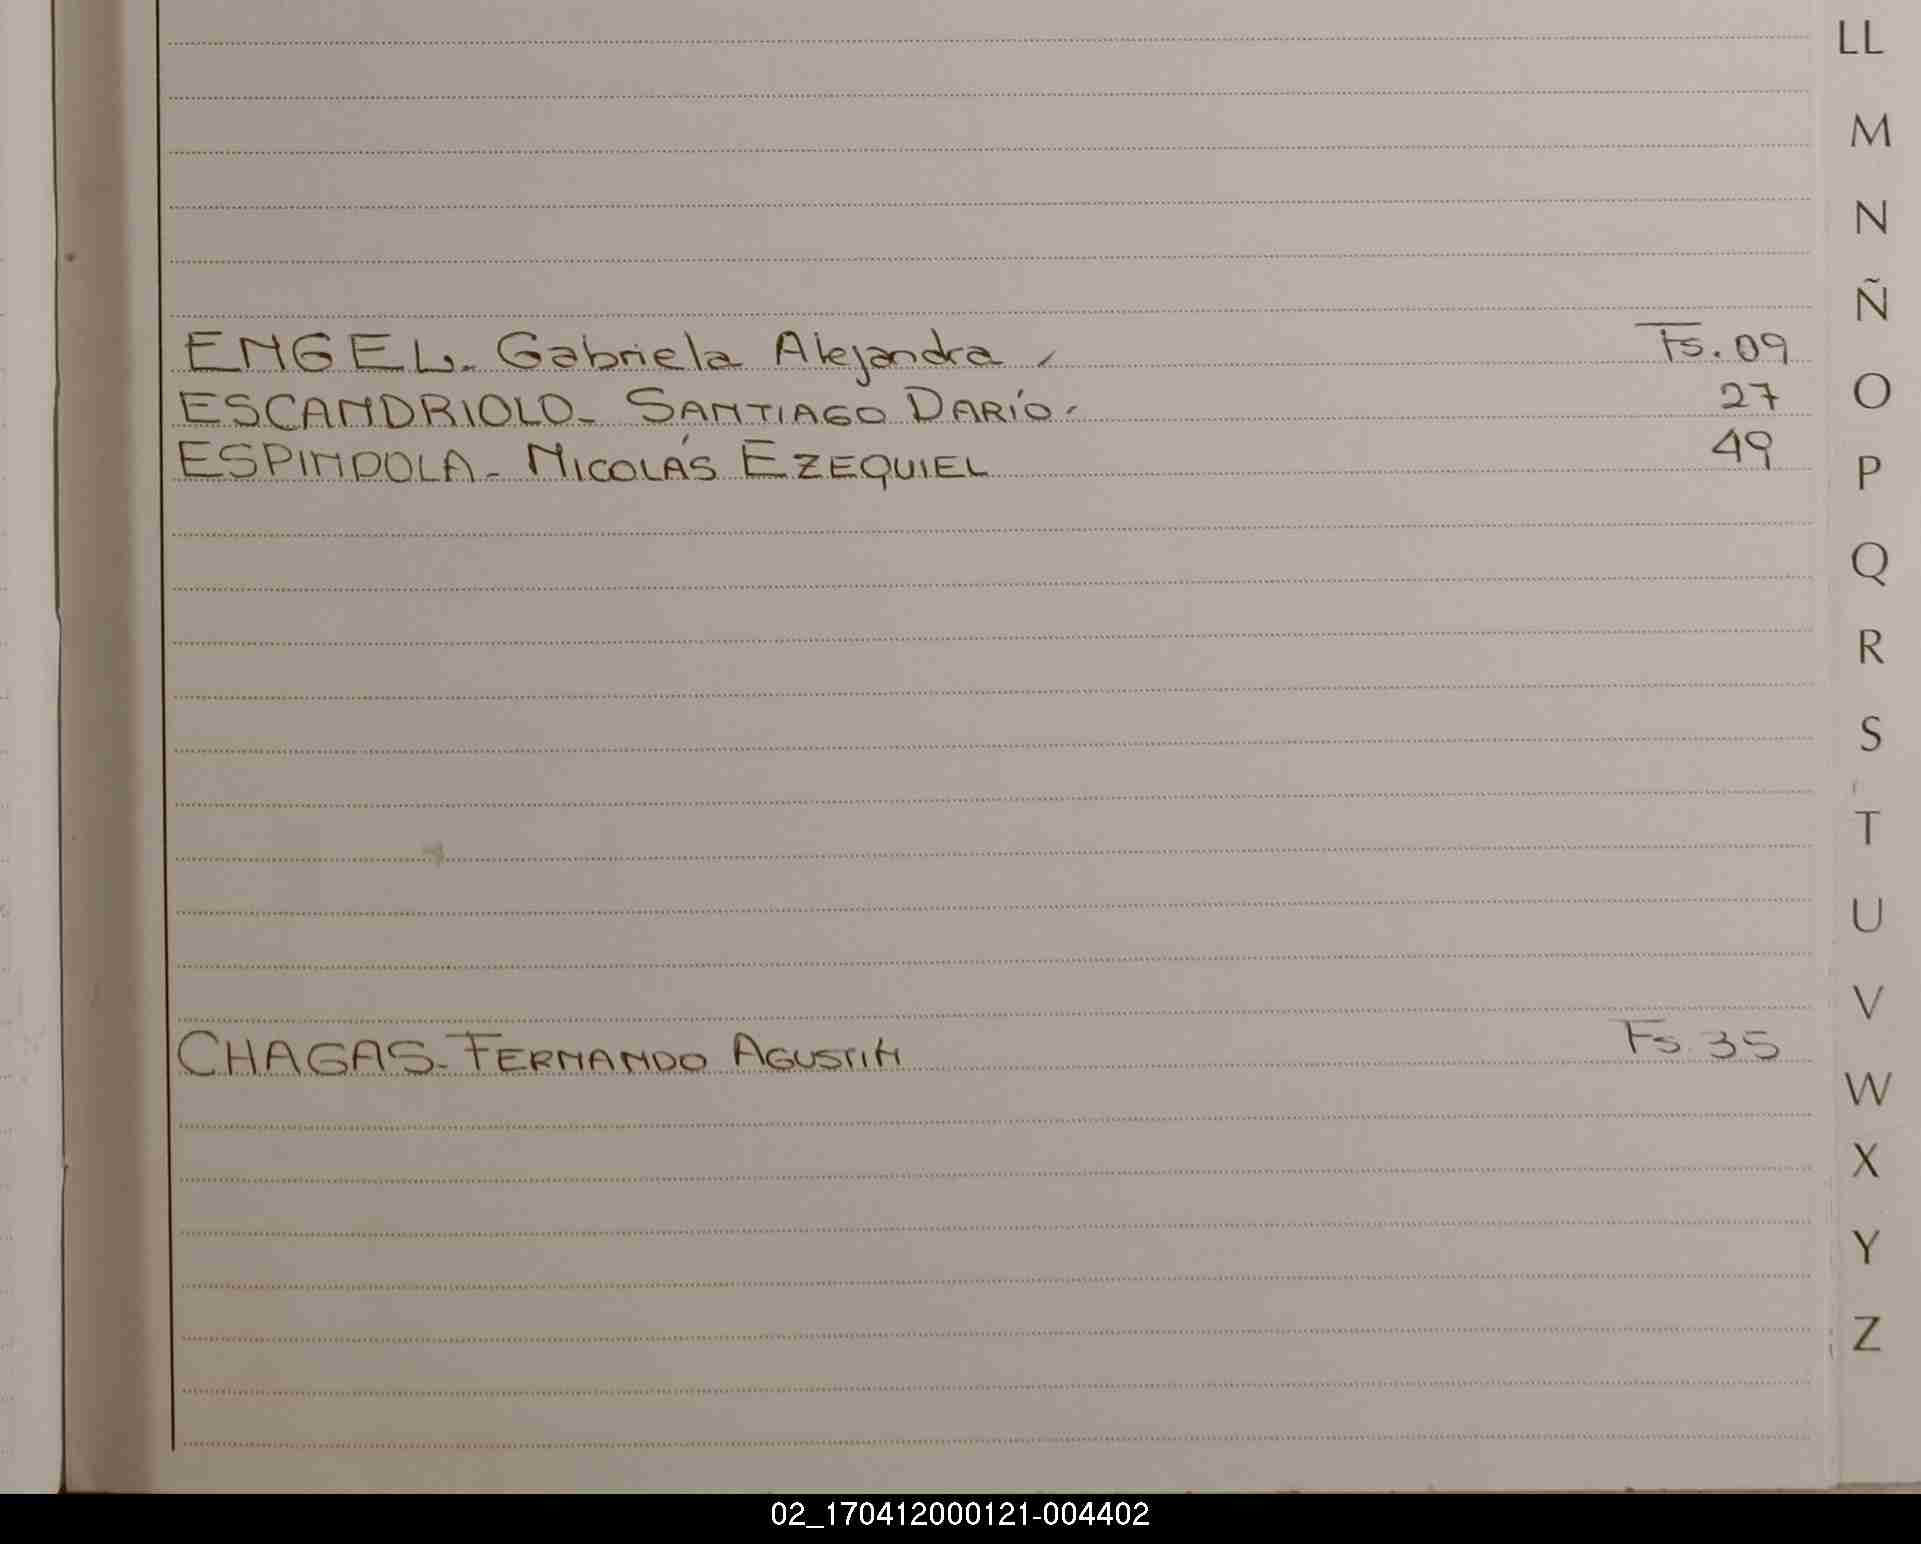 LL
M
N
Ñ
ENGEL. Gabriela Alejandra Fs. 09
O
ESCANDRIOLO- SANTIAGO DARÍO. 27
ESPINDOLA- NICOLÁS EZEQUIEL 49
P
Q
R
S
T
U
V
CHAGAS- FERNANDO AGUSTIN Fs 35
W
X
Y
Z
02_170412000121-004402